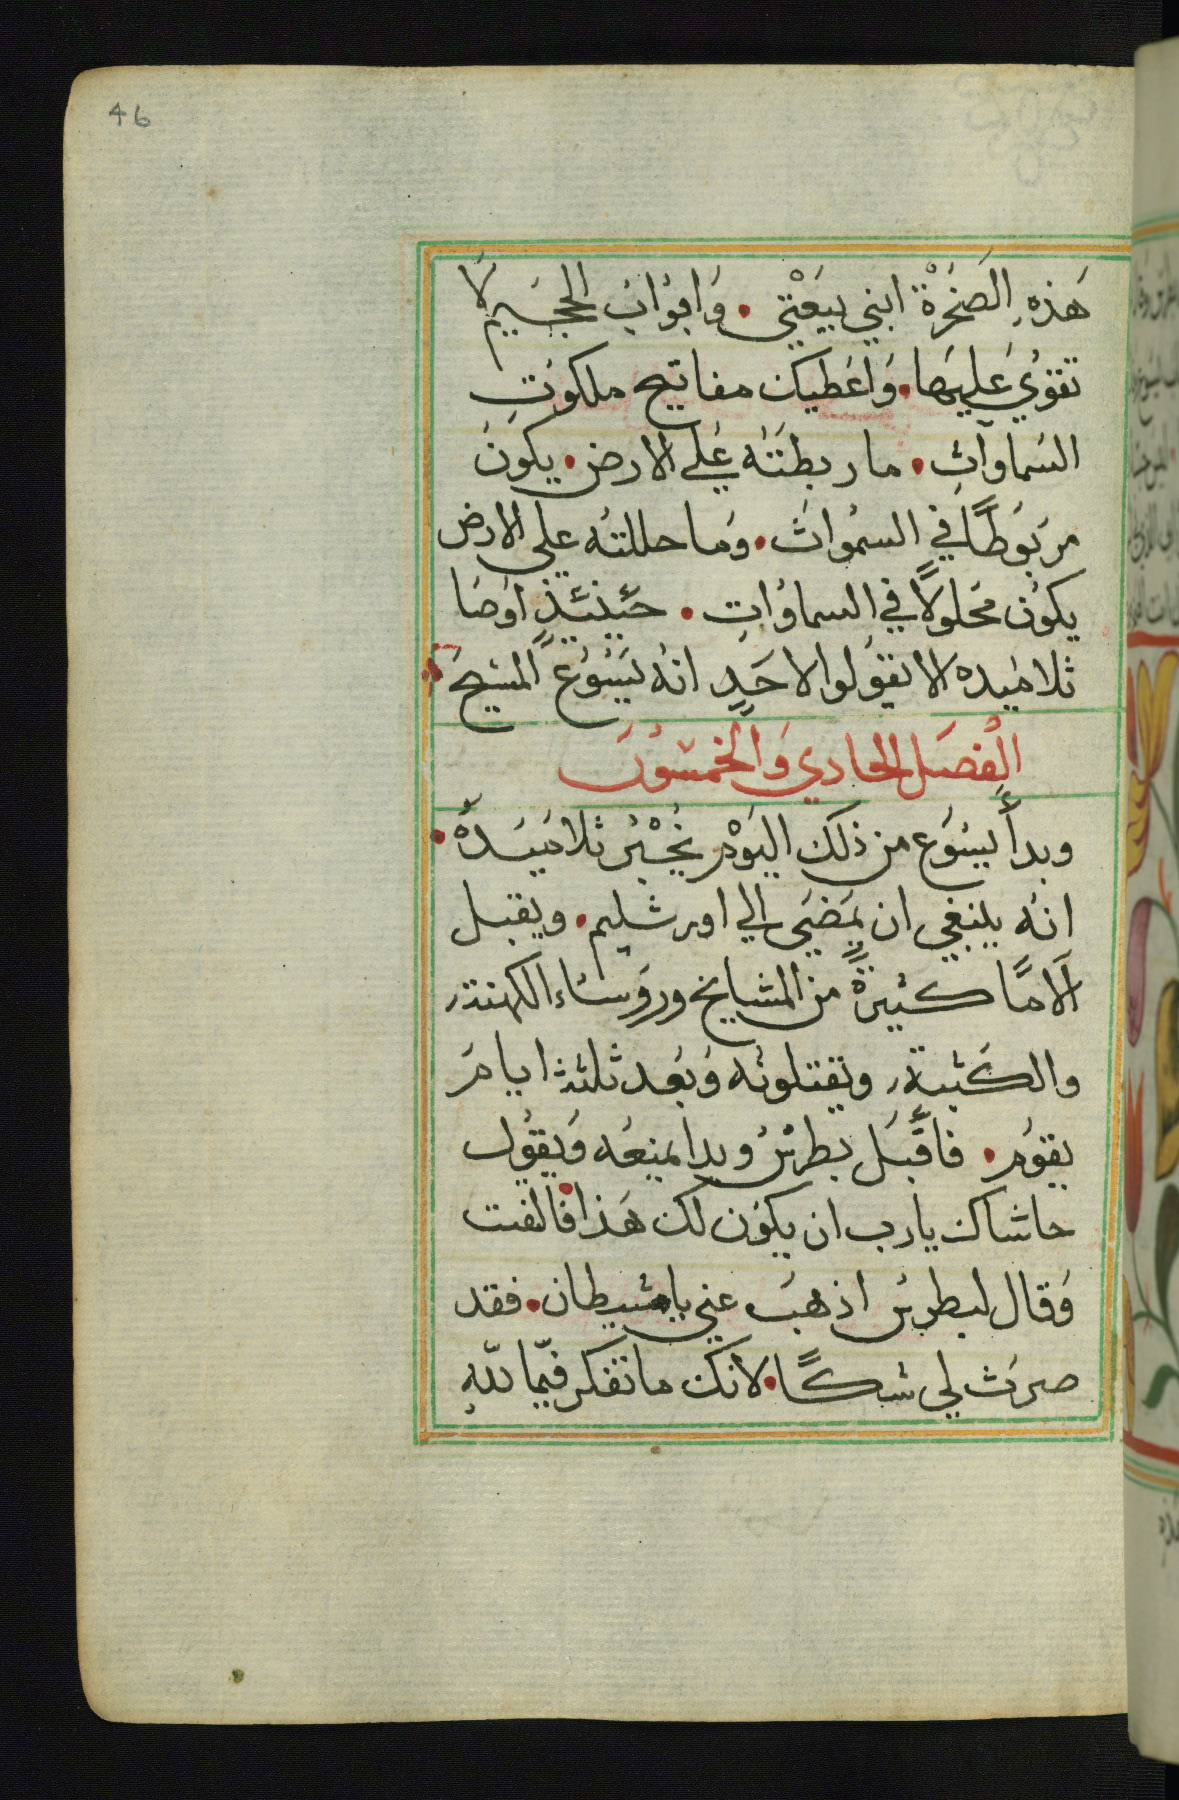 46
هَذهِ الصَخَرْة ابني بيعَتْي • وَابوُابَ الجحَيم لَا
تقوُي عَليهَا • وَاعَطيك مفاتيح ملكوَتِ
السَماوآتِ • ما ربطتَهُ عَلي الارض • يكوَنُ
مربَوُطًا في السمُواتَ • وَما حللتهُ علي الارض
يكوُن محَلولاً في السماوُاتِ • حَينئذٍ اوُصَا
تلاميَده الا يقوَلوا لاحَدٍ انهُ يَسُوُع المسَيحَ
الفِصَل الحادي وَالخمسُوُنَ
وبدأ يسُوَع من ذلك اليوَمْ يخُبْرُ تلاميَدهُ •
انهُ ينبغي ان يمَضيَ الي اورشليم • ويقبل
آلامًا كثيرةً من المشايخ وروَساء الكهنة
والكَتبة ويقتلونهُ وَبعُد ثلثة ايامَ
يقوُم • فاقَبَل بطرسُ وبدا يمنعُه وَيقوُل
حاشاك يارب ان يكوَن لك هَذا • فالفت
وَقال لبطرسُ اذهبَ عني ياشيطان • فقد
صرتَ لي شكًا • لانك ما تفكر فيمّا للّهِ